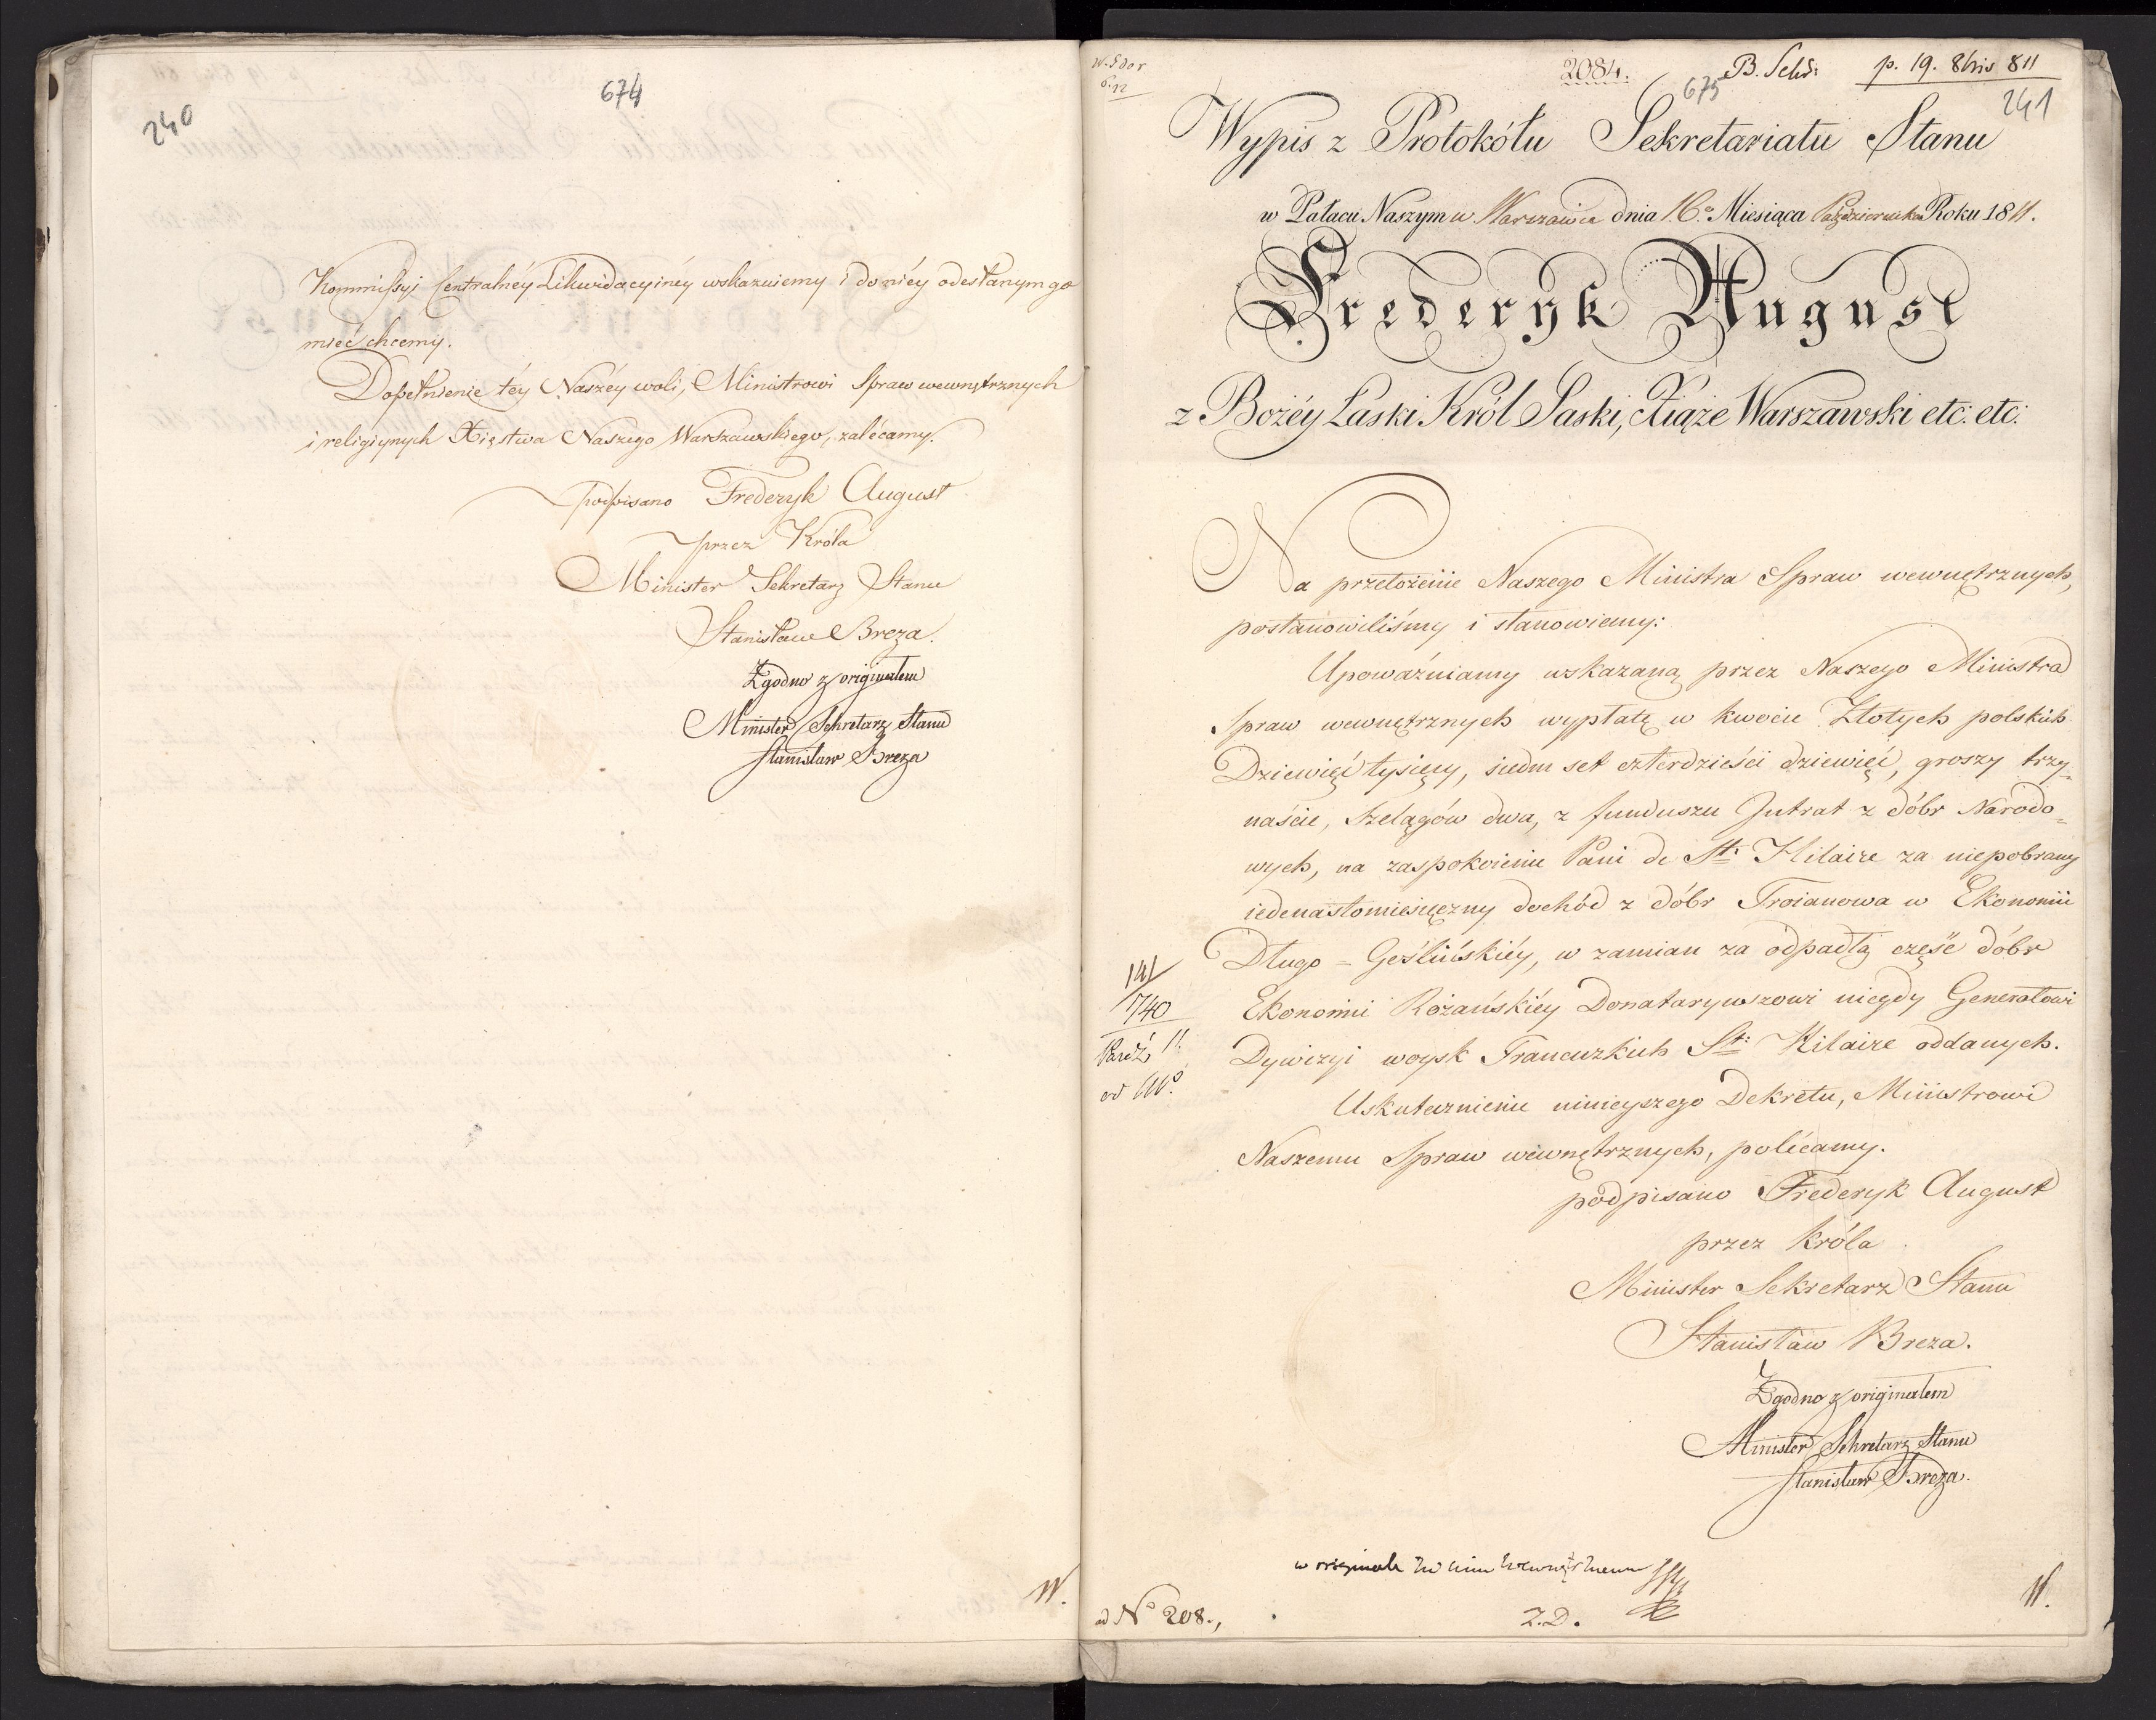 240
674
Kommissyi Centralnéy Likwidacyinéy wskazuiemy i do niéy odesłanym go
mieć chcemy.
Dopełnienie téy Naszéy woli, Ministrowi Spraw wewnętrznych
i religiynych Xięstwa Naszego Warszawskiego, zalécamy.
podpisano Frederyk August
przez Króla
Minister Sekretarz Stanu
Stanisław Breza.
Zgodno z originałem
Minister Sekretarz Stanu
Stanisław Breza
W.
2084.
675
B. Sekr:
p. 19. 8bris 811
241
Wypis z Protokółu Sekretariatu Stanu
w Pałacu Naszym w Warszawie dnia 16.° Miesiąca Października Roku 1811.
Frederyk August
z Bożéy Łaski Król Saski, Xiąże Warszawski etc: etc:
Na przełożenie Naszego Ministra Spraw wewnętrznych,
postanowiliśmy i stanowiemy:
Upoważniamy wskazaną przez Naszego Ministra
Spraw wewnętrznych wypłatę w kwocie Złotych polskich
Dziewięć tysięcy, siedm set czterdzieści dziewięć, groszy trzy-
naście, szelągów dwa, z funduszu Jntrat z dóbr Narodo=
wych, na zaspokoienie Pani de St: Hilaire za niepobrany
iedenastomiesięczny dochód z dóbr Troianowa w Ekonomii
Długo=Goślińskiéy, w zamian za odpadłą część dóbr
Ekonomii Rożańskiéy Donataryuszowi niegdy Generałowi
Dywizyi woysk Francuzkich St: Hilaire oddanych.
Uskutecznienie ninieyszego Dekretu, Ministrowi
Naszemu Spraw wewnętrznych, polécamy.
podpisano Frederyk August
przez Króla
Minister Sekretarz Stanu
Stanisław Breza.
Zgodno z originałem
Minister Sekretarz Stanu
Stanisław Breza.
1740
Paźd 11.
w originale
ad N° 208.,
Z.D.
W.